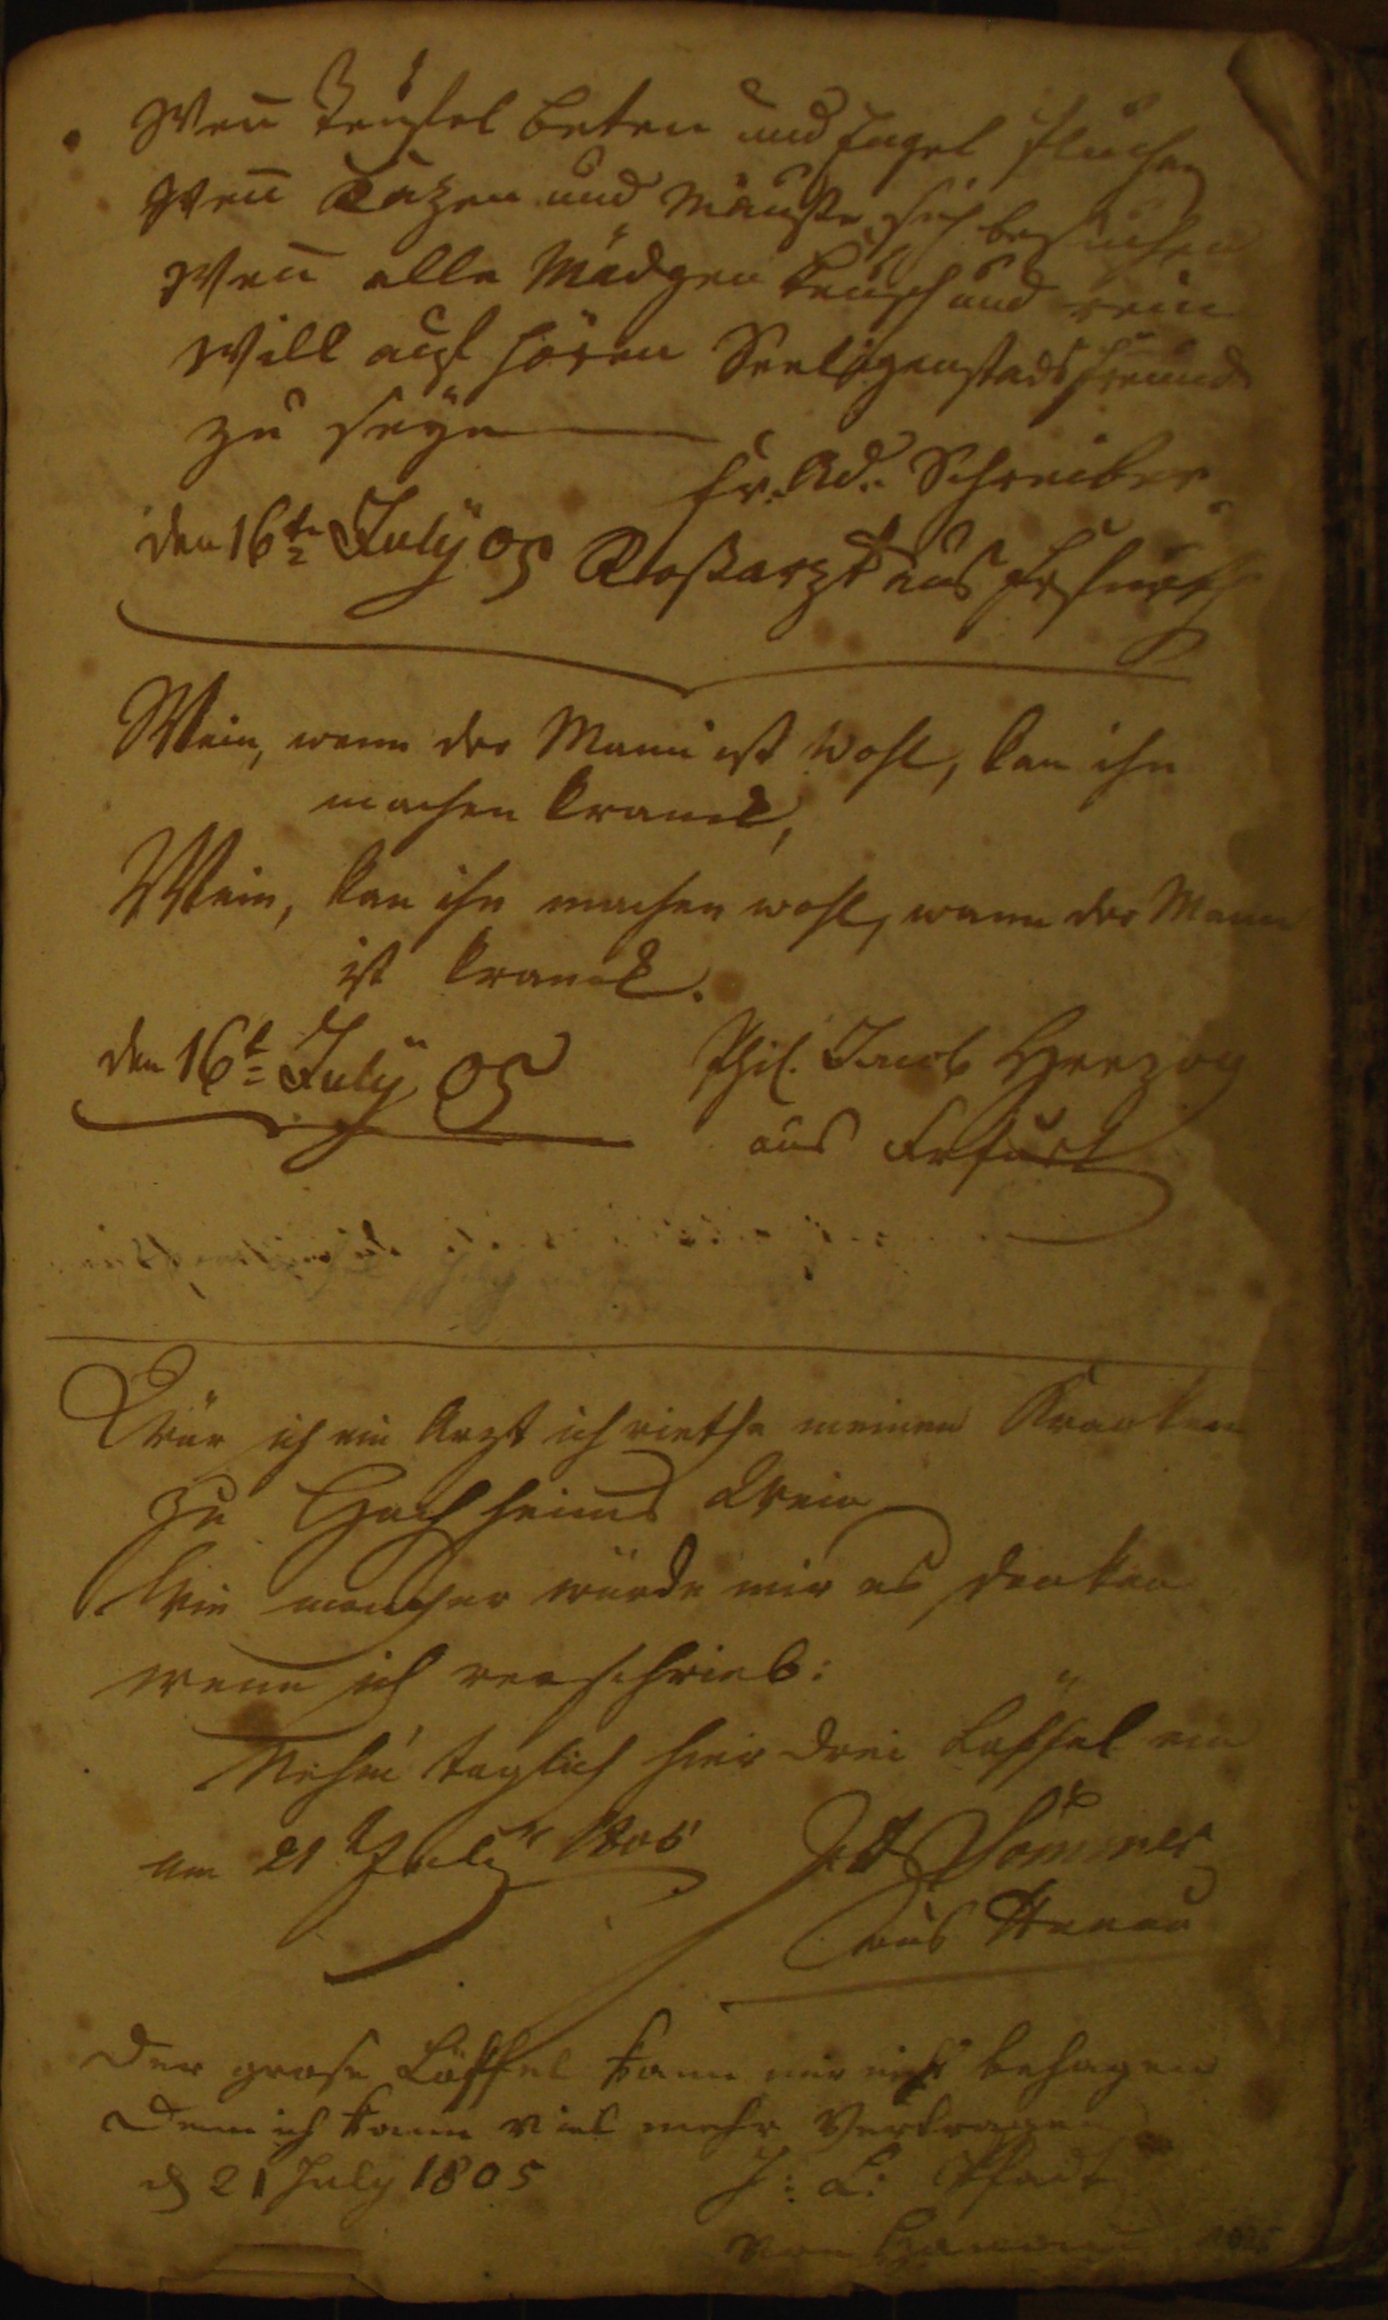 Wen̄ Teufel beten und Engel fluchen
Wen̄ Kazen und Mäuße sich besuchen
Wen̄ alle Mädgen keusch und rein
Will auf hören Seeligenstads Freund
zu seÿn
Fr. Ad. Schreiber
den 16tn Julÿ 05 Roßarzt aus
Wein, wenn der Mann ist wohl, kan ihn
machen kranck,
Wein, kan ihn machen wohl, wann der Mann
ist kranck.
den 16t Julÿ 05 Phil. Jacob Herzog
aus Erfurt
Wär ich ein Arzt ich riethe meinen Kranken
zu Hochheims Wein
Wie mancher würde mir es danken
wenn ich verschrieb:
Nehm täglich hier drei Löffel ein
am 21t July 1805 Sommer
aus Hanau
Der grose Löffel kann mir nicht behagen
Denn ich kann viel mehr Vertragen
d 21 July 1805 J: C: Pfadt
von Hanau